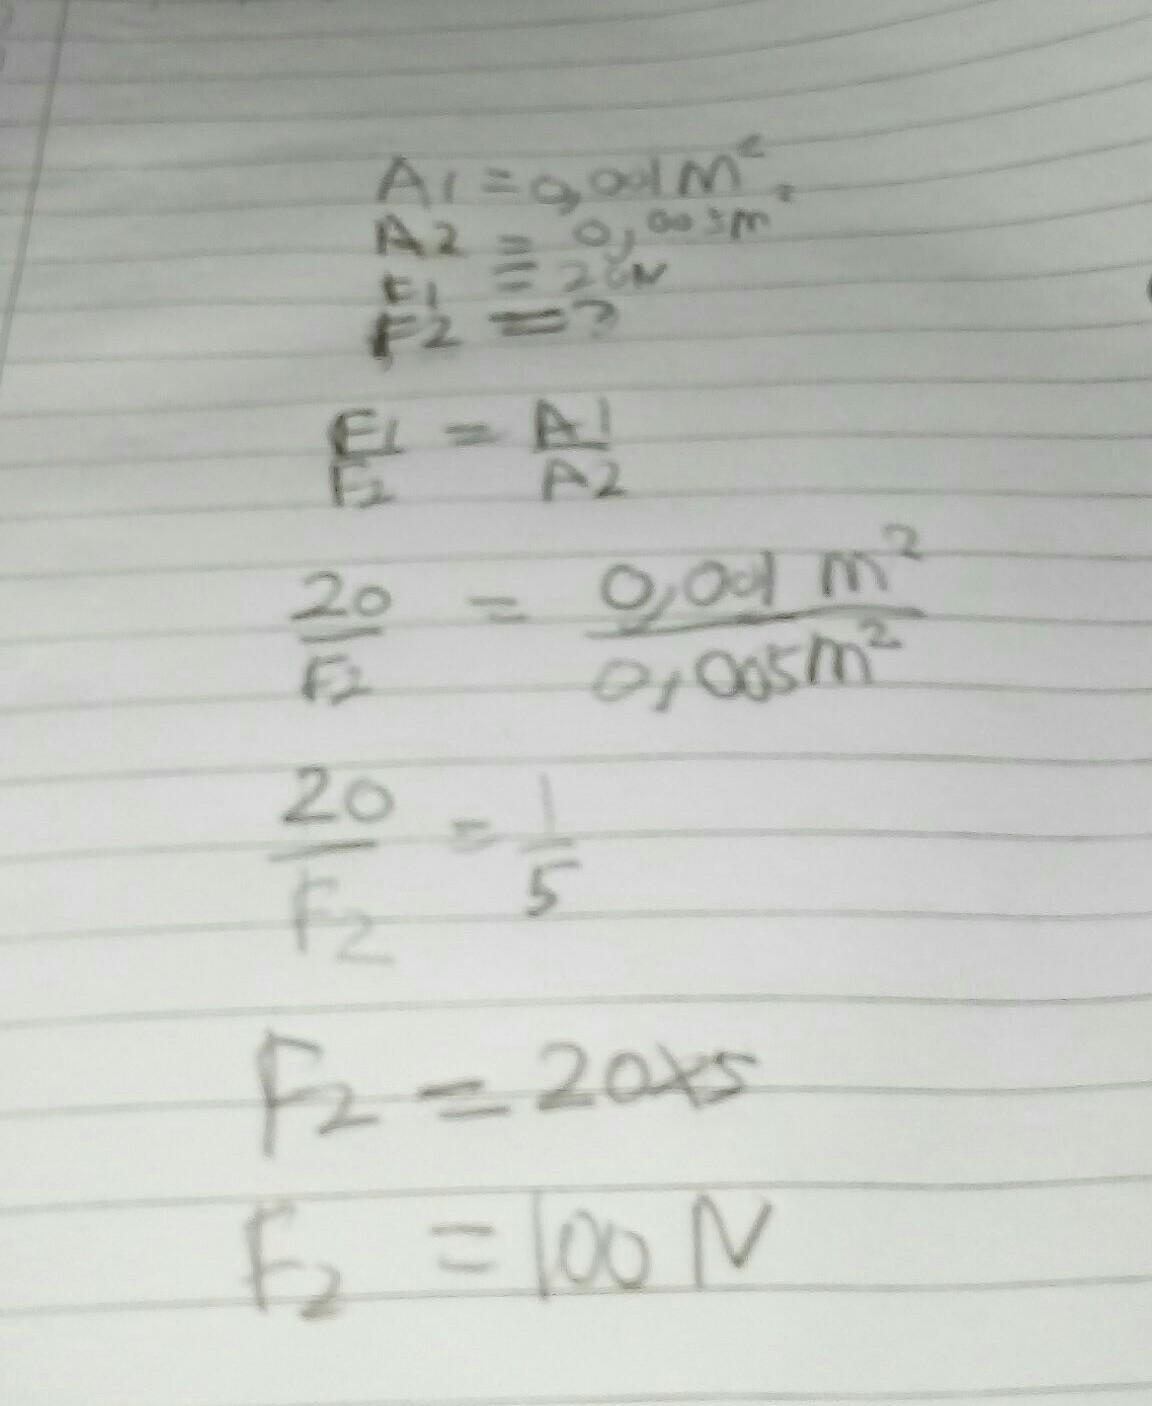 A1 = 0,001 m²
A2 = 0,005m²
F1 = 20N
F2 = ?
F1 = A1
F2 A2
20 = 0,001 m²
F2 0,005m²
20 = 1
F2 5
F2 = 20x5
F2 = 100 N